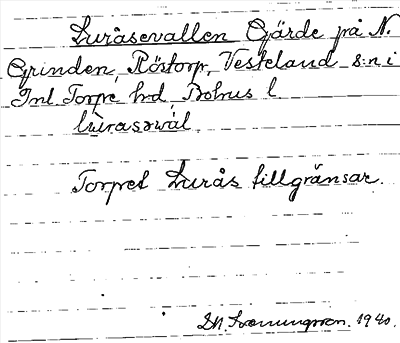 Luråsevallen Gärde på N.
Grinden, Röstorp, Vesteland s:n i
Inl. Torpe hrd, Bohus l.
lùrasəwàl
Torpet Lurås tillgränsar.
1940.